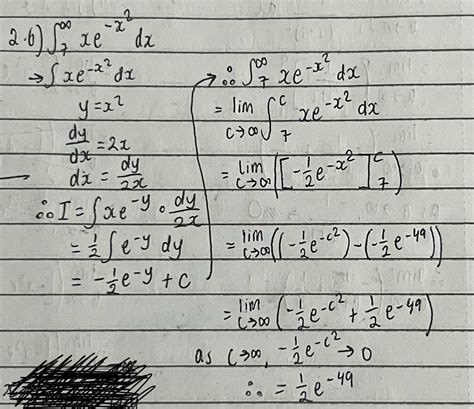 2.b) ∫₇^∞ xe^{-x²} dx
→ ∫xe^{-x²} dx
y = x²
dy/dx = 2x
dx = dy/2x
∴ I = ∫xe^{-y} · dy/2x
= 1/2 ∫e^{-y} dy
= -1/2 e^{-y} + c
∴ ∫₇^∞ xe^{-x²} dx
= lim_{c→∞} ∫₇^c xe^{-x²} dx
= lim_{c→∞} ([-1/2 e^{-x²}]₇^c)
= lim_{c→∞} ((-1/2 e^{-c²}) - (-1/2 e^{-49}))
= lim_{c→∞} (-1/2 e^{-c²} + 1/2 e^{-49})
as c→∞, -1/2 e^{-c²} → 0
∴ = 1/2 e^{-49}